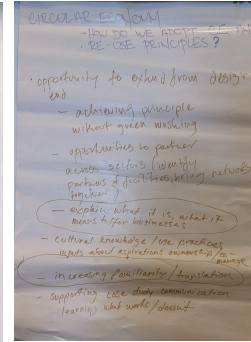 CIRCULAR ECONOMY
- HOW DO WE ADOPT CE
RE-USE PRINCIPLES?
• opportunity to extend from design
end
- achieving principle
without green washing
- opportunities to partner
across sectors (identify
partners & facilities, bring network
together)
- explain what it is, what it
means to/for businesses
- cultural knowledge/use practices
inputs about aspirations ownership/co-
manage
- increasing familiarity/translations
- supporting case study communication
- learning what works/doesn't